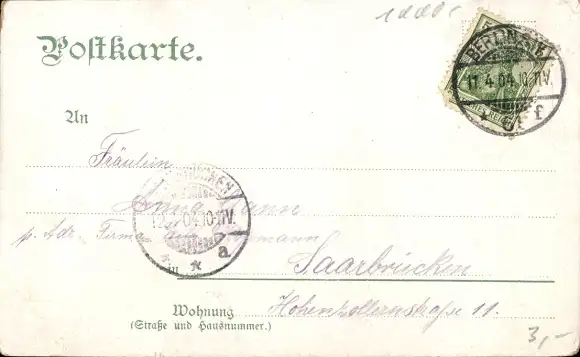 1000.
Postkarte.
BERLIN S.W.
11.4.04.10-11V.
* 61 f
An
Fräulein
Anna
SAARBRÜCKEN
12.4.04.10-11V.
* * a
p. Adr. Firma
in Saarbrücken
Wohnung Hohenzollernstraße 11.
(Straße und Hausnummer.)
3,-